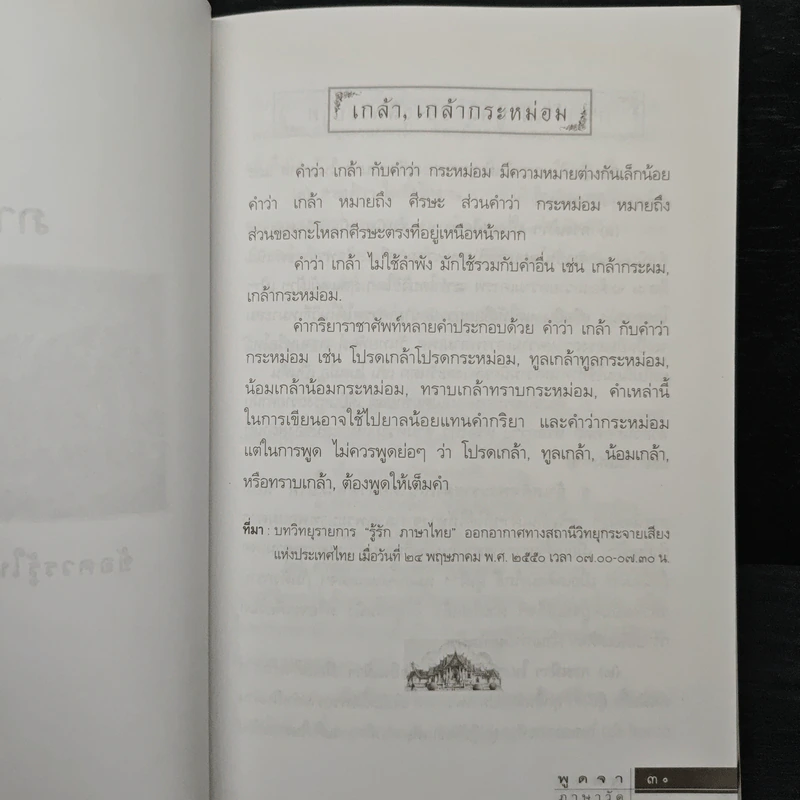 เกล้า, เกล้ากระหม่อม
คำว่า เกล้า กับคำว่า กระหม่อม มีความหมายต่างกันเล็กน้อย
คำว่า เกล้า หมายถึง ศีรษะ ส่วนคำว่า กระหม่อม หมายถึง
ส่วนของกะโหลกศีรษะตรงที่อยู่เหนือหน้าผาก
คำว่า เกล้า ไม่ใช้ลำพัง มักใช้รวมกับคำอื่น เช่น เกล้ากระผม,
เกล้ากระหม่อม.
คำกริยาราชาศัพท์หลายคำประกอบด้วย คำว่า เกล้า กับคำว่า
กระหม่อม เช่น โปรดเกล้าโปรดกระหม่อม, ทูลเกล้าทูลกระหม่อม,
น้อมเกล้าน้อมกระหม่อม, ทราบเกล้าทราบกระหม่อม, คำเหล่านี้
ในการเขียนอาจใช้ไปยาลน้อยแทนคำกริยา และคำว่ากระหม่อม
แต่ในการพูด ไม่ควรพูดย่อๆ ว่า โปรดเกล้า, ทูลเกล้า, น้อมเกล้า,
หรือทราบเกล้า, ต้องพูดให้เต็มคำ
ที่มา : บทวิทยุรายการ "รู้รัก ภาษาไทย" ออกอากาศทางสถานีวิทยุกระจายเสียง
แห่งประเทศไทย เมื่อวันที่ ๒๔ พฤษภาคม พ.ศ. ๒๕๕๐ เวลา ๐๗.๐๐-๐๗.๓๐ น.
พูดจา ๓๐
ภาษาวัด
ข้อควรรู้ใน